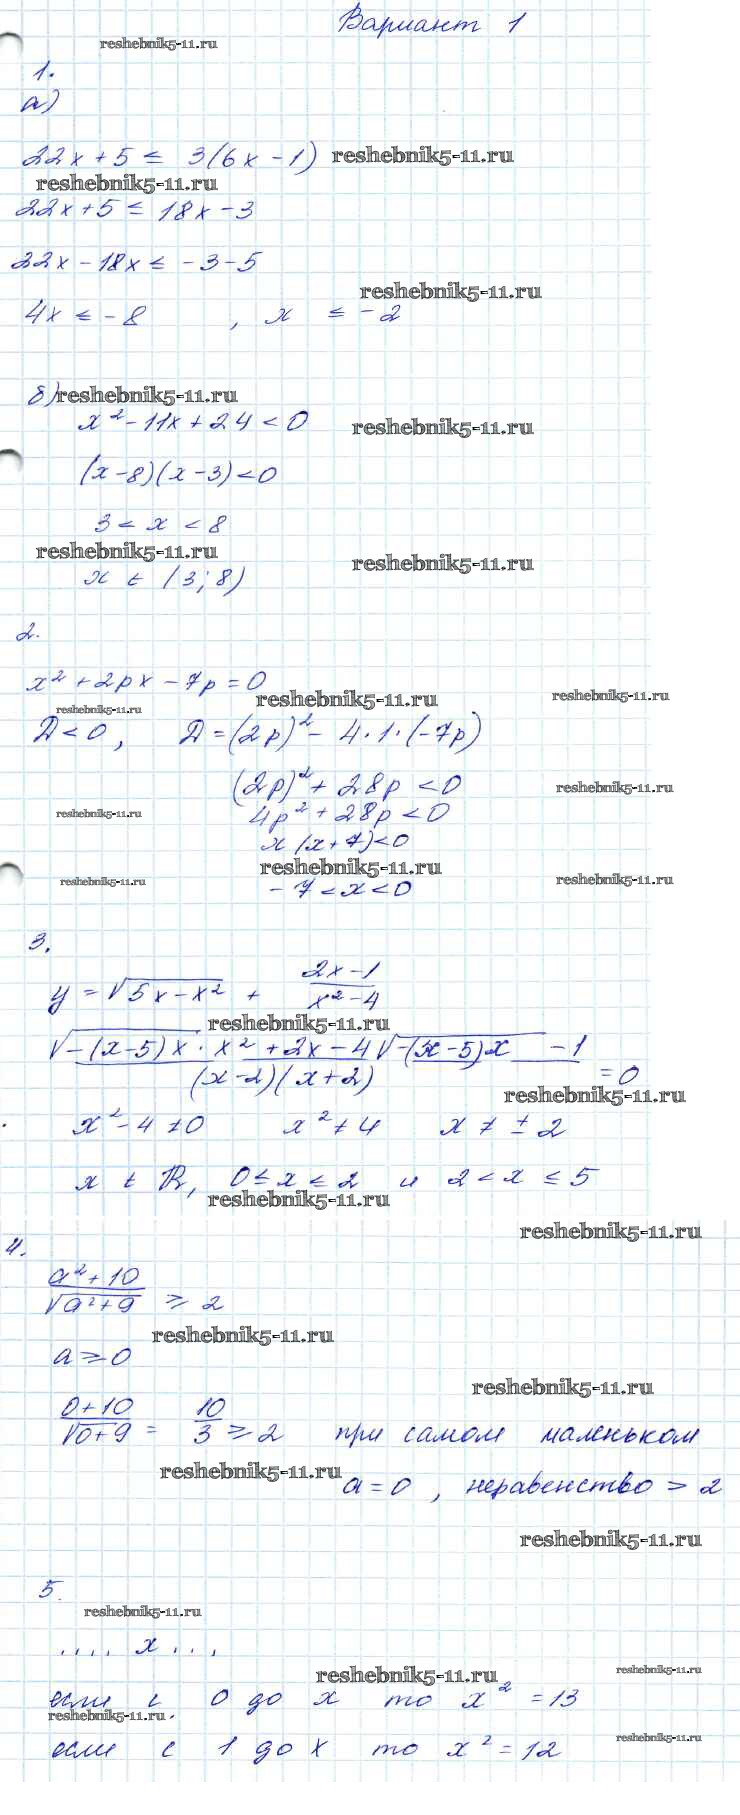 Вариант 1
reshebnik5-11.ru
1.
а)
22x + 5 ≤ 3(6x - 1) reshebnik5-11.ru
reshebnik5-11.ru
22x + 5 ≤ 18x - 3
22x - 18x ≤ -3 - 5
reshebnik5-11.ru
4x ≤ -8 , x ≤ -2
б) reshebnik5-11.ru
x² - 11x + 24 < 0 reshebnik5-11.ru
(x - 8)(x - 3) < 0
3 < x < 8
reshebnik5-11.ru reshebnik5-11.ru
x ∈ (3; 8)
2.
x² + 2px - 7p = 0 reshebnik5-11.ru reshebnik5-11.ru
reshebnik5-11.ru
D < 0, D = (2p)² - 4·1·(-7p)
(2p)² + 28p < 0 reshebnik5-11.ru
reshebnik5-11.ru 4p² + 28p < 0
x(x + 7) < 0
reshebnik5-11.ru
reshebnik5-11.ru -7 < x < 0 reshebnik5-11.ru
3.
y = √5x - x² + 2x - 1 / x² - 4
reshebnik5-11.ru
√-(x-5)x · x² + 2x - 4√-(x-5)x - 1 / (x-2)(x+2) = 0
reshebnik5-11.ru
x² - 4 ≠ 0 x² ≠ 4 x ≠ ± 2
x ∈ R, 0 ≤ x ≤ 2 и 2 < x ≤ 5
reshebnik5-11.ru
reshebnik5-11.ru
4.
a² + 10 / √a² + 9 ≥ 2
reshebnik5-11.ru
a ≥ 0
reshebnik5-11.ru
0 + 10 / √0 + 9 = 10 / 3 ≥ 2 при самом маленьком
reshebnik5-11.ru
a = 0 , неравенство > 2
reshebnik5-11.ru
5.
reshebnik5-11.ru
.... x ...
reshebnik5-11.ru reshebnik5-11.ru
если с 0 до x то x² = 13
reshebnik5-11.ru
reshebnik5-11.ru
если с 1 до x то x² = 12